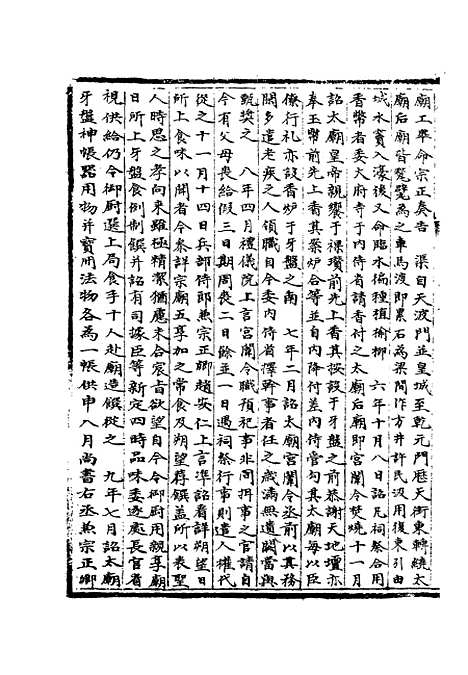 廟工畢命宗正奏告　渠自天波門並皇城至乾元門歷天街東轉繞太
廟后廟皆甃甓為之車馬渡即累石為梁間作方井許民汲用復東引由
城水竇入濠後又命臨水偏種植榆柳　六年十月八日詔凡祠祭合用
香幣者委太府寺于內侍省請香付之太廟后廟即宮闈令焚燒十一月
詔太廟皇帝親饗于祼瓚前先上香其按設于牙盤之前恭謝天地壇亦
奉玉幣前先上香其案炉合等並自內降付差內侍管勾其太廟每以臣
僚行礼亦設香炉于牙盤之南　七年二月詔太廟宮闈令丞前以真務
闕多遣老疾之人領職自今委內侍省擇幹事者任之歲滿無遺闕當與
甄獎之　八年四月禮儀院上言宮闈令職預祀事非同押事之官請自
今有父母喪給假三日期周喪二日餘並一日遇祠祭行事則遣人權代
從之十一月十四日兵部侍郎兼宗正卿趙安仁上言準詔看詳朔望日
所上食味以聞者今參詳宗廟五享加之常食及朔望荐饌盖所以表聖
人時思之孝向來雖極精潔猶慮未合宸㫖欲望自今令御厨用親享廟
日所上牙盤食例制饌并詔有司據臣等新定四時品味委逐處長官看
視供給仍令御厨選上局食手十人赴廟造饌從之　九年七月詔太廟
牙盤神帳噐用物并寳冊法物各為一帳供申八月尚書右丞兼宗正卿